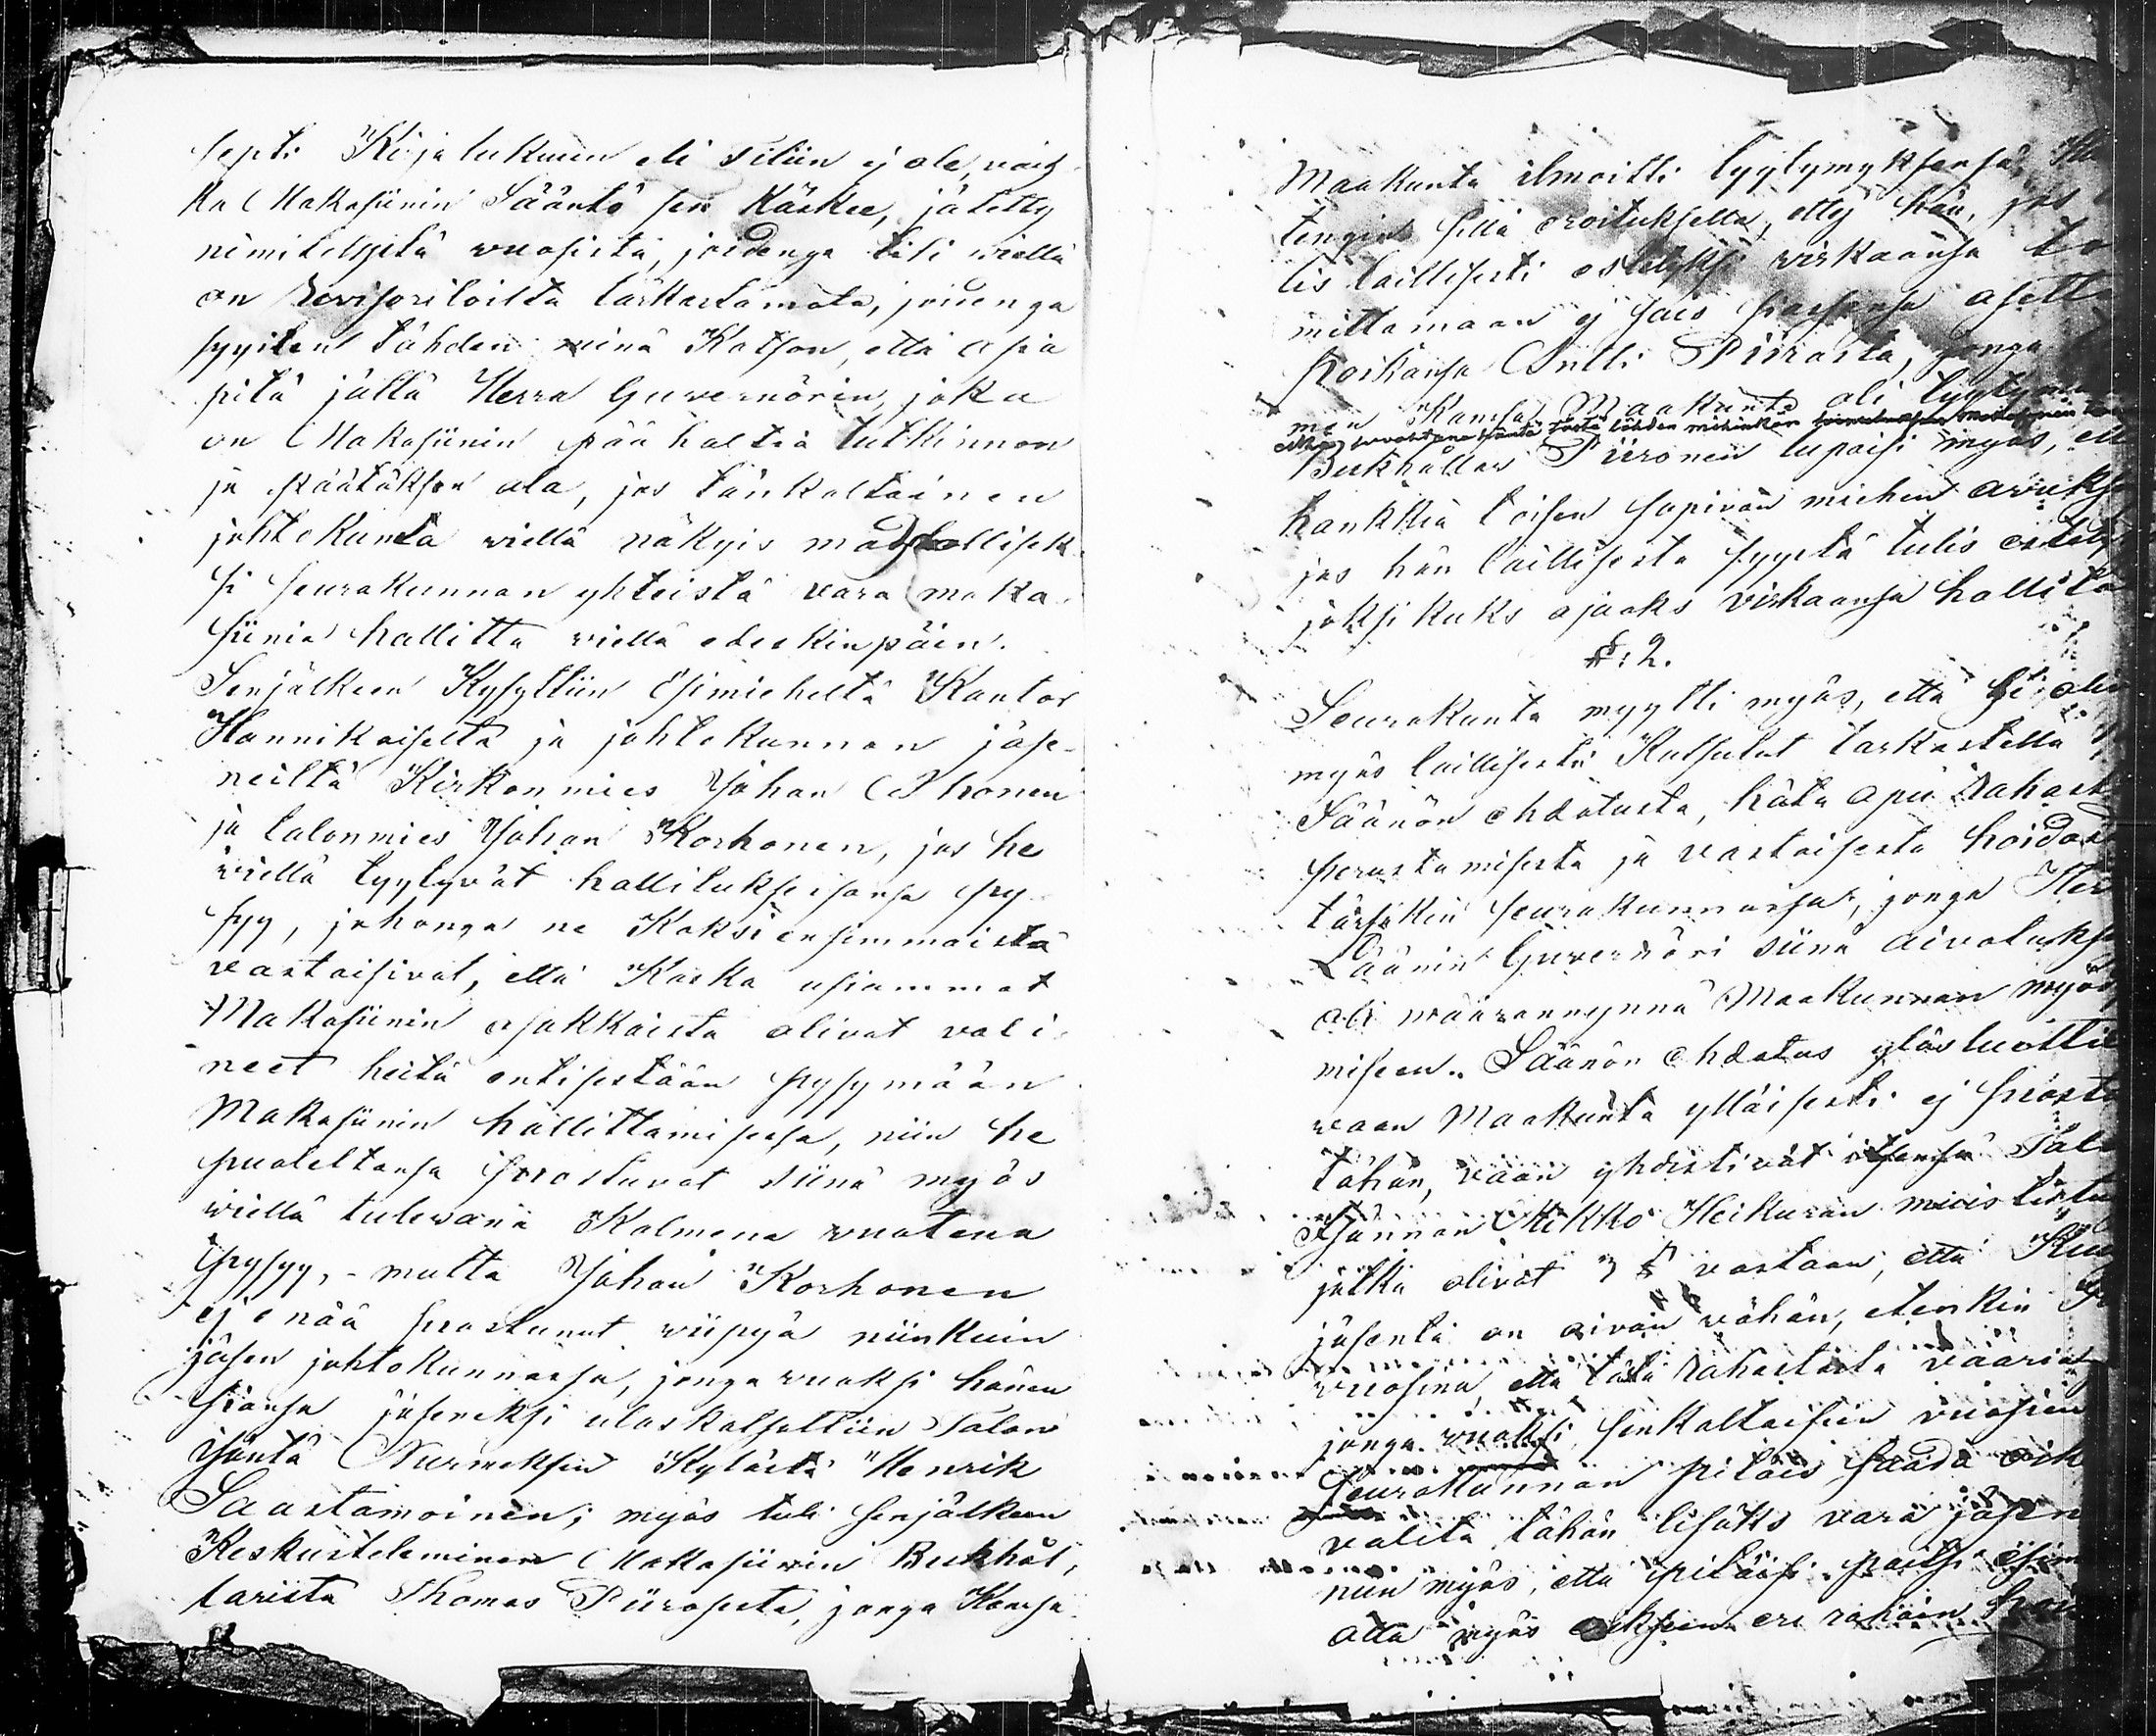 septi Kirjalukuun eli Tiliin ej ole, vaik
ka Makasiinin Sääntö sen Käskee, jätetty
nimitettyistä vuosista, joidenga tili wiellä
on Revisoriloilta tarkastamata, joidenga
syyiten tähden minä Katson, että asia
pitä jättä Herra Guvernörin, joka
on Makasiinin pää haltia tutkinnon
ja päätöksen ala, jos tänkaltainen
johtokunta wiellä näkyis mahdollisek
si seurakunnan yhteistä vara maka
siinia hallitta wiellä edeskinpäin.
Senjälkeen Kysyttiin Esimieheltä Kantor
Hannikaiselta ja johtokunnan jäse-
neiltä Kirkonmies Johan Ihonen
ja talonmies Johan Korhonen, jos he
wiellä tyytyvät hallituksesansa py
syy, johonga ne Kaksi ensimmäistä
vastaisivat, että Kaska usiammat
Makasiinin osakkaista olivat vali
neet heitä entisestään pysymään
Makasiinin hallittamisesa, niin he
puoleltansa suostuvat siinä myös
wiellä tulevana Kolmena vuotena
pysyy, - mutta Johan Korhonen
ej enää suostunut wiipyä niinkuin
jäsen johtokunnassa, jonga vuoksi hänen
siansa jäseneksi uloskatsottiin Talon
isäntä Nurmeksen Kylästä Henrik
Saastamoinen; myös tuli senjälkeen
Keskusteleminen Makasiinin Bukhål,
larista Thomas Piirosesta, jonga Kansa
Maakunta ilmoitti tyytymyksensä,
tengin sillä eroituksella, ettej hän, jos
tis laillisesti estetyksi virkaansa to
mittamaan ej sais siassansa asetta
poikansa Antti Piirosta, jonga
men Kansa Maakunta oli tyytymä
Bukhållar Piironen lupaisi myös, ett
hankkia toisen sopivan miehen avuks
jos hän laillisesta syystä tulis estety
joksikuks ajaaks virkaansa hallita
§: 2.
Seurakunta myytti myös, että he oli
myös laillisesti Kutsutut tarkastella
Säänön ehdotusta, hätä apu Rahast
perustamisesta ja vastaisesta hoidos
tässäkin seurakunnassa, jonga Her
Läänin Guvernöri siinä aivotuks
oli määrännynnä Maakunnan myös
miseen. Säänön ehdotus ylösluettii
vaan Maakunta ylläisesti ej suostu
tähän, vaan yhdistivät itsensä Talo
Isännän Mikko Heikuran
jotka olivat § vastaan, että
jäsentä on aivan vähän, etenkin
vuosina, että tätä Rahastosta vääri
jonga vuoksi senkaltaisiin vuosien
Seurakunnan pitäis saada oik
valita tähän lisäks vara jäsen
niin myös, että pitäisi paitsi esim
olla myös eri rahain